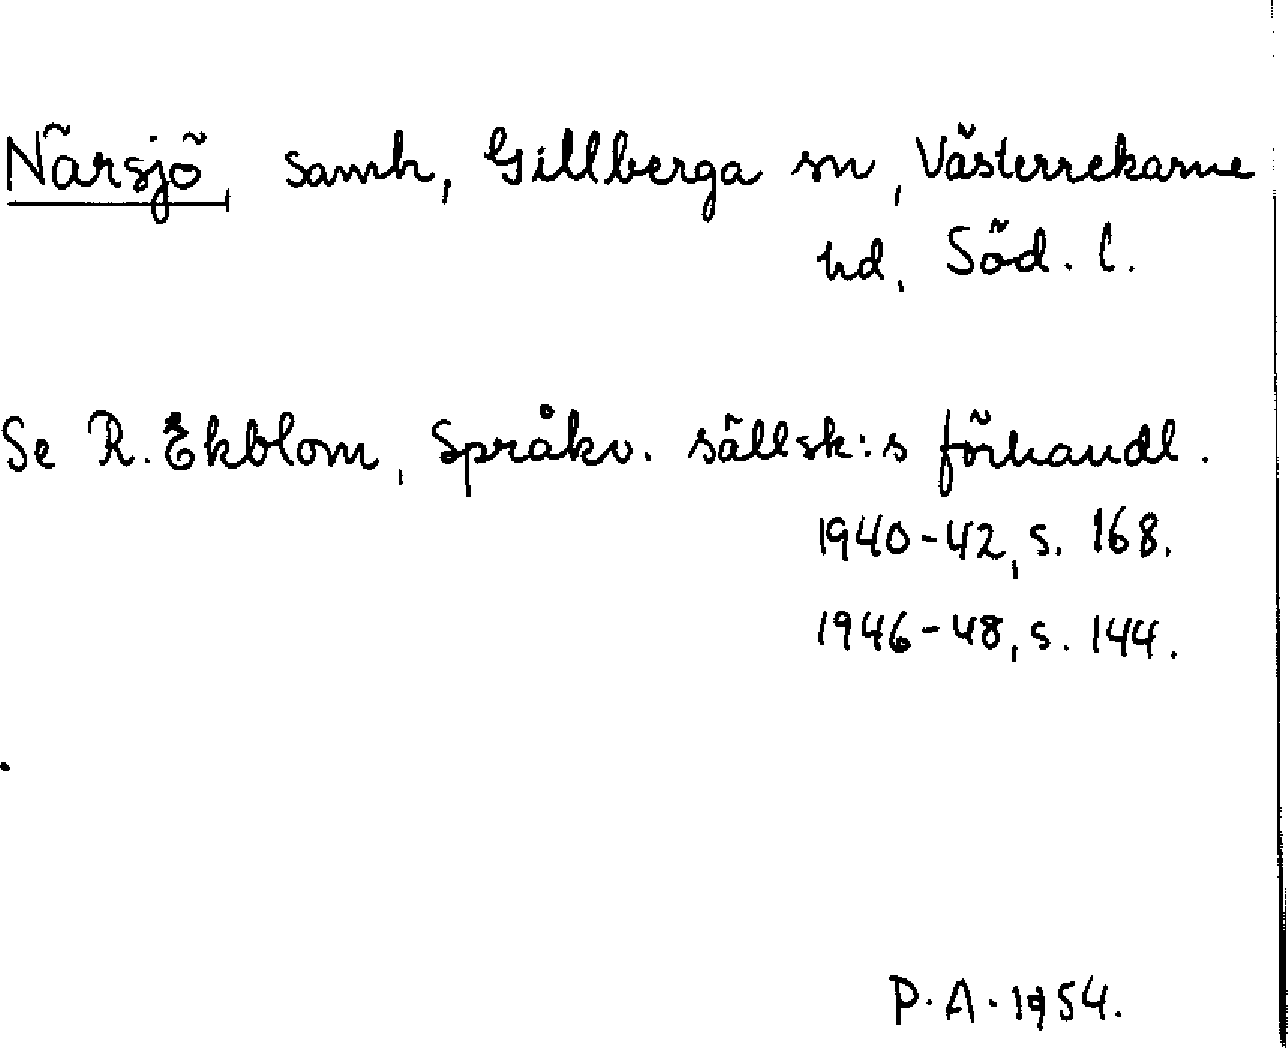 Närsjö, samh, Gillberga sn, Västerrekarne
hd, Söd. l.
Se R. Ekblom, Språkv. sällsk:s förhandl.
1940-42, s. 168.
1946-48, s. 144.
P.A. 1954.